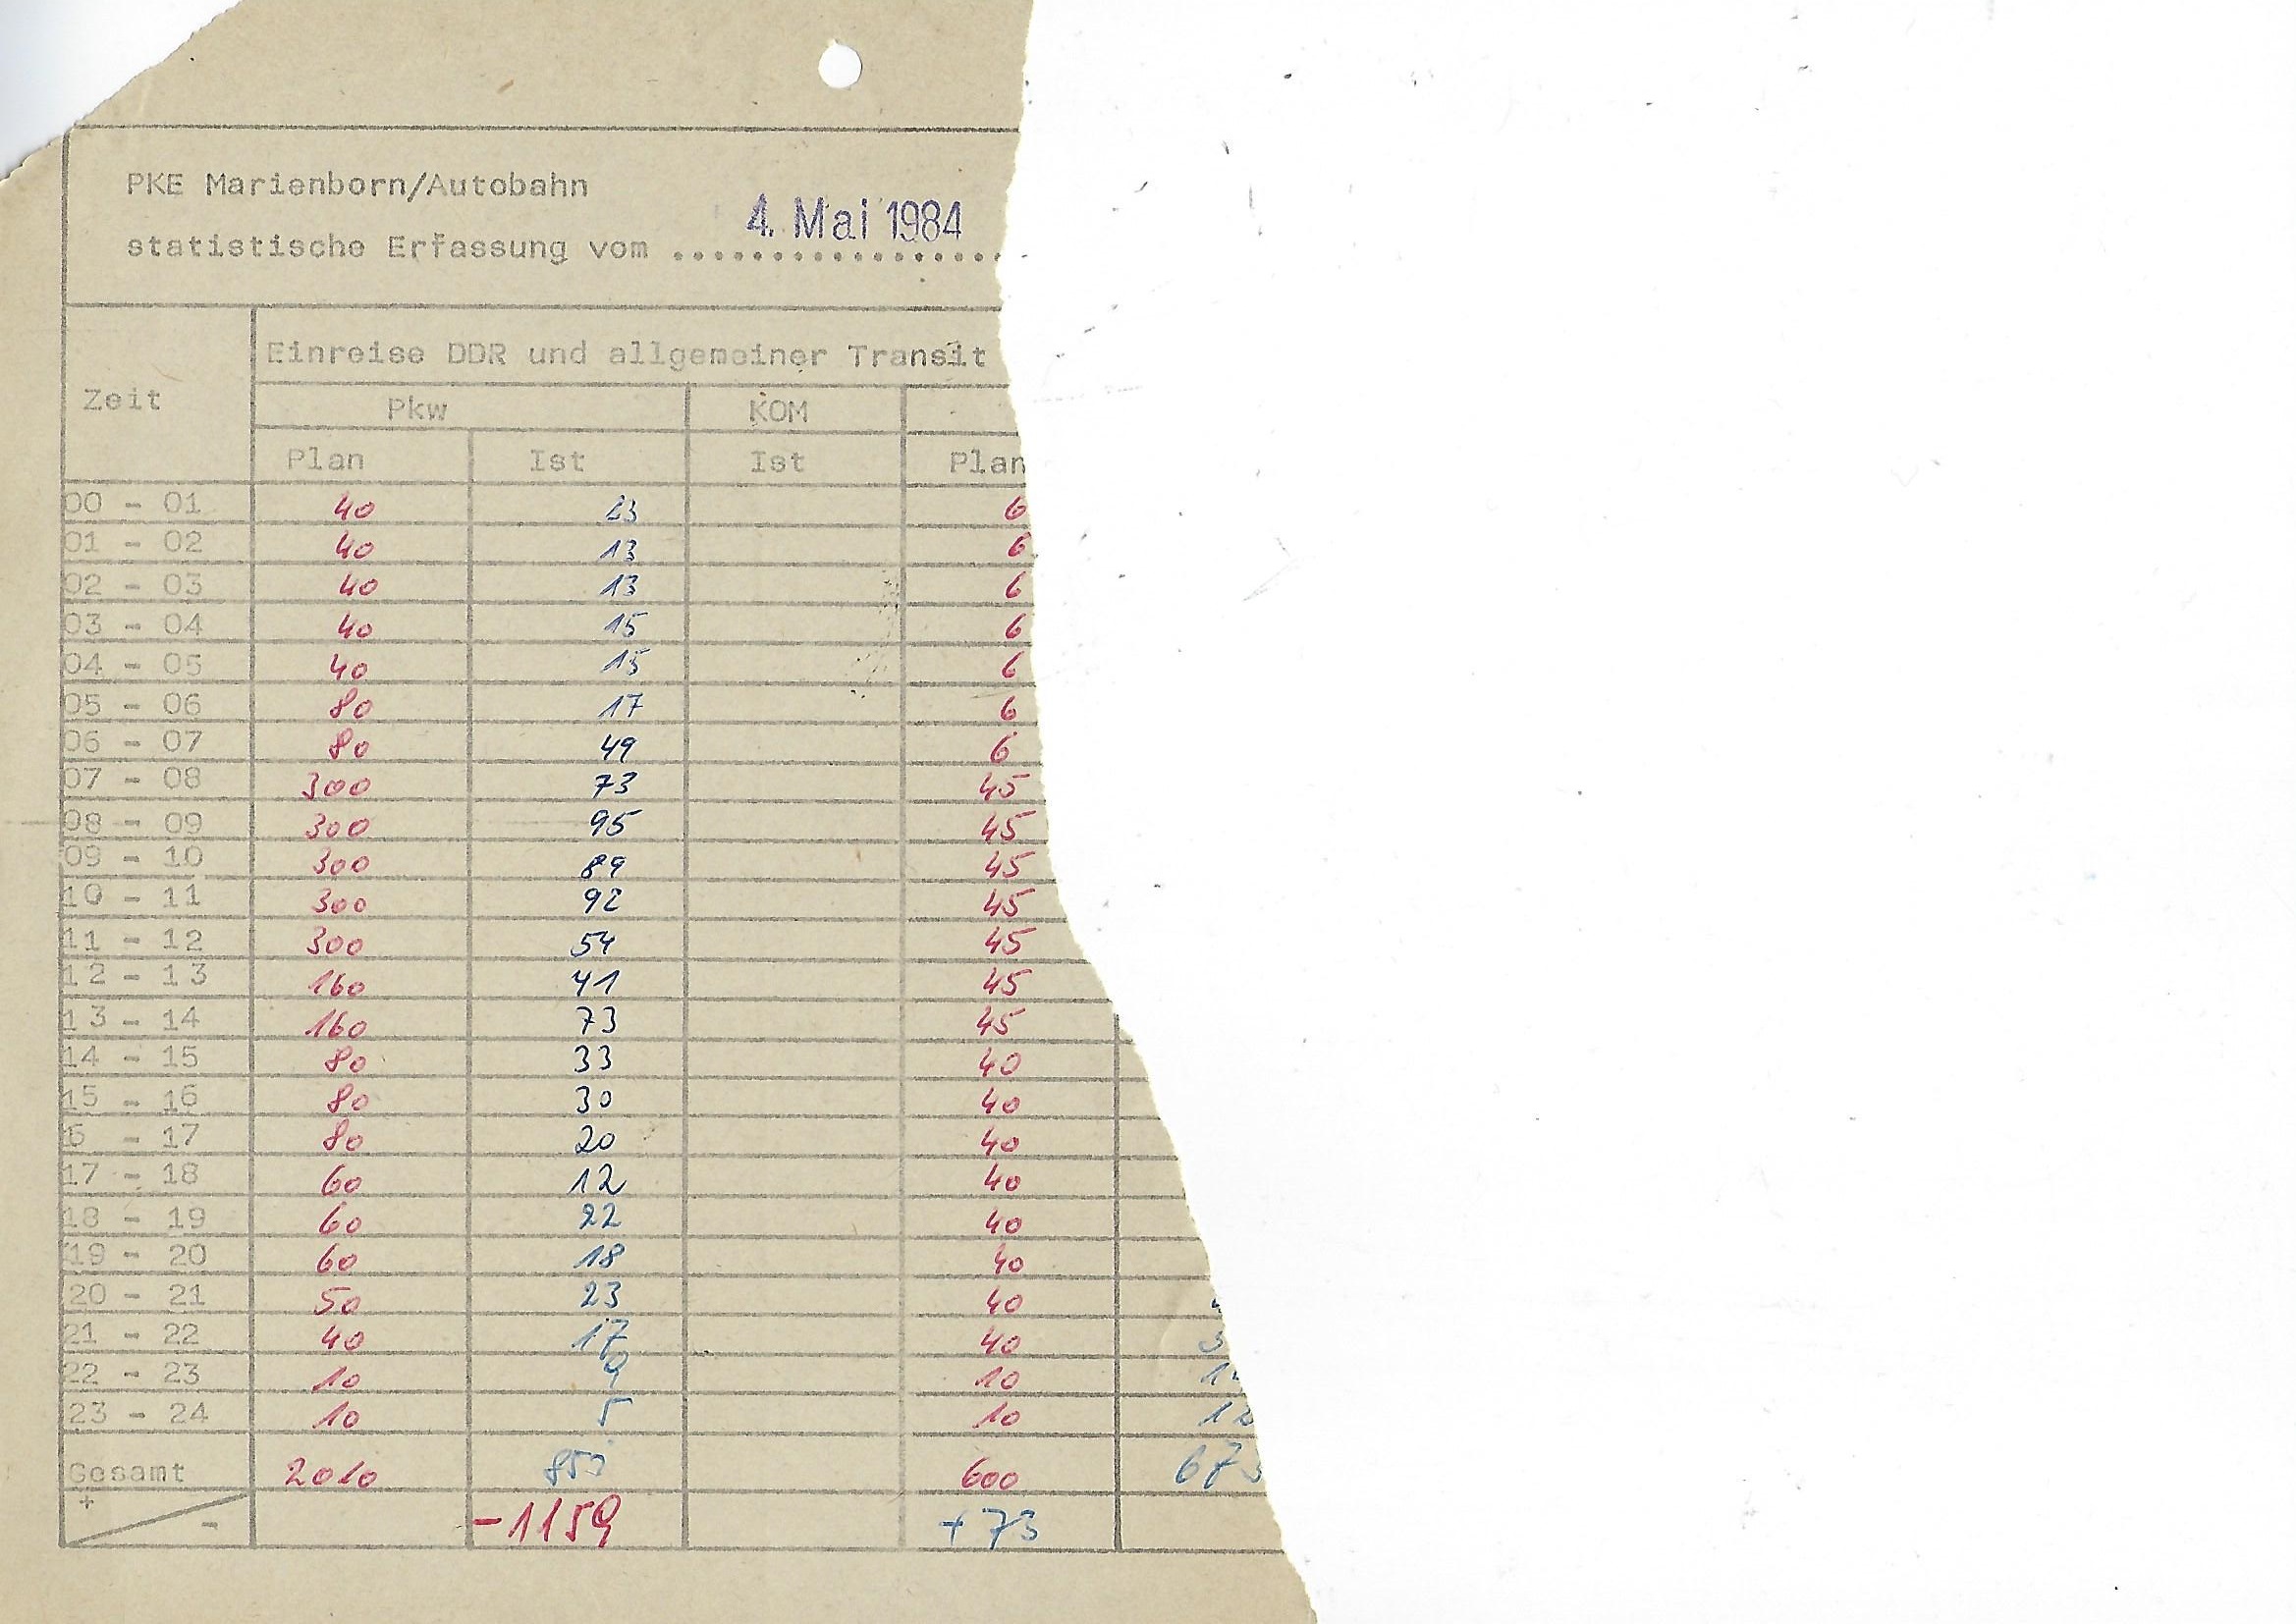 PKE Marienborn/Autobahn
4. Mai 1984
statistische Erfassung vom ..................
Einreise DDR und allgemeiner Transit
Zeit
Pkw KOM
Plan Ist Ist Plan
00 - 01 40 23 6
01 - 02 40 13 6
02 - 03 40 13 6
03 - 04 40 15 6
04 - 05 40 15 6
05 - 06 80 17 6
06 - 07 80 49 6
07 - 08 300 73 45
08 - 09 300 95 45
09 - 10 300 89 45
10 - 11 300 92 45
11 - 12 300 54 45
12 - 13 160 41 45
13 - 14 160 73 45
14 - 15 80 33 40
15 - 16 80 30 40
6 - 17 80 20 40
17 - 18 60 12 40
18 - 19 60 22 40
19 - 20 60 18 40
20 - 21 50 23 40
21 - 22 40 17 40
22 - 23 10 9 10
23 - 24 10 5 10 12
Gesamt 2010 600 673
+
- -1159 +73